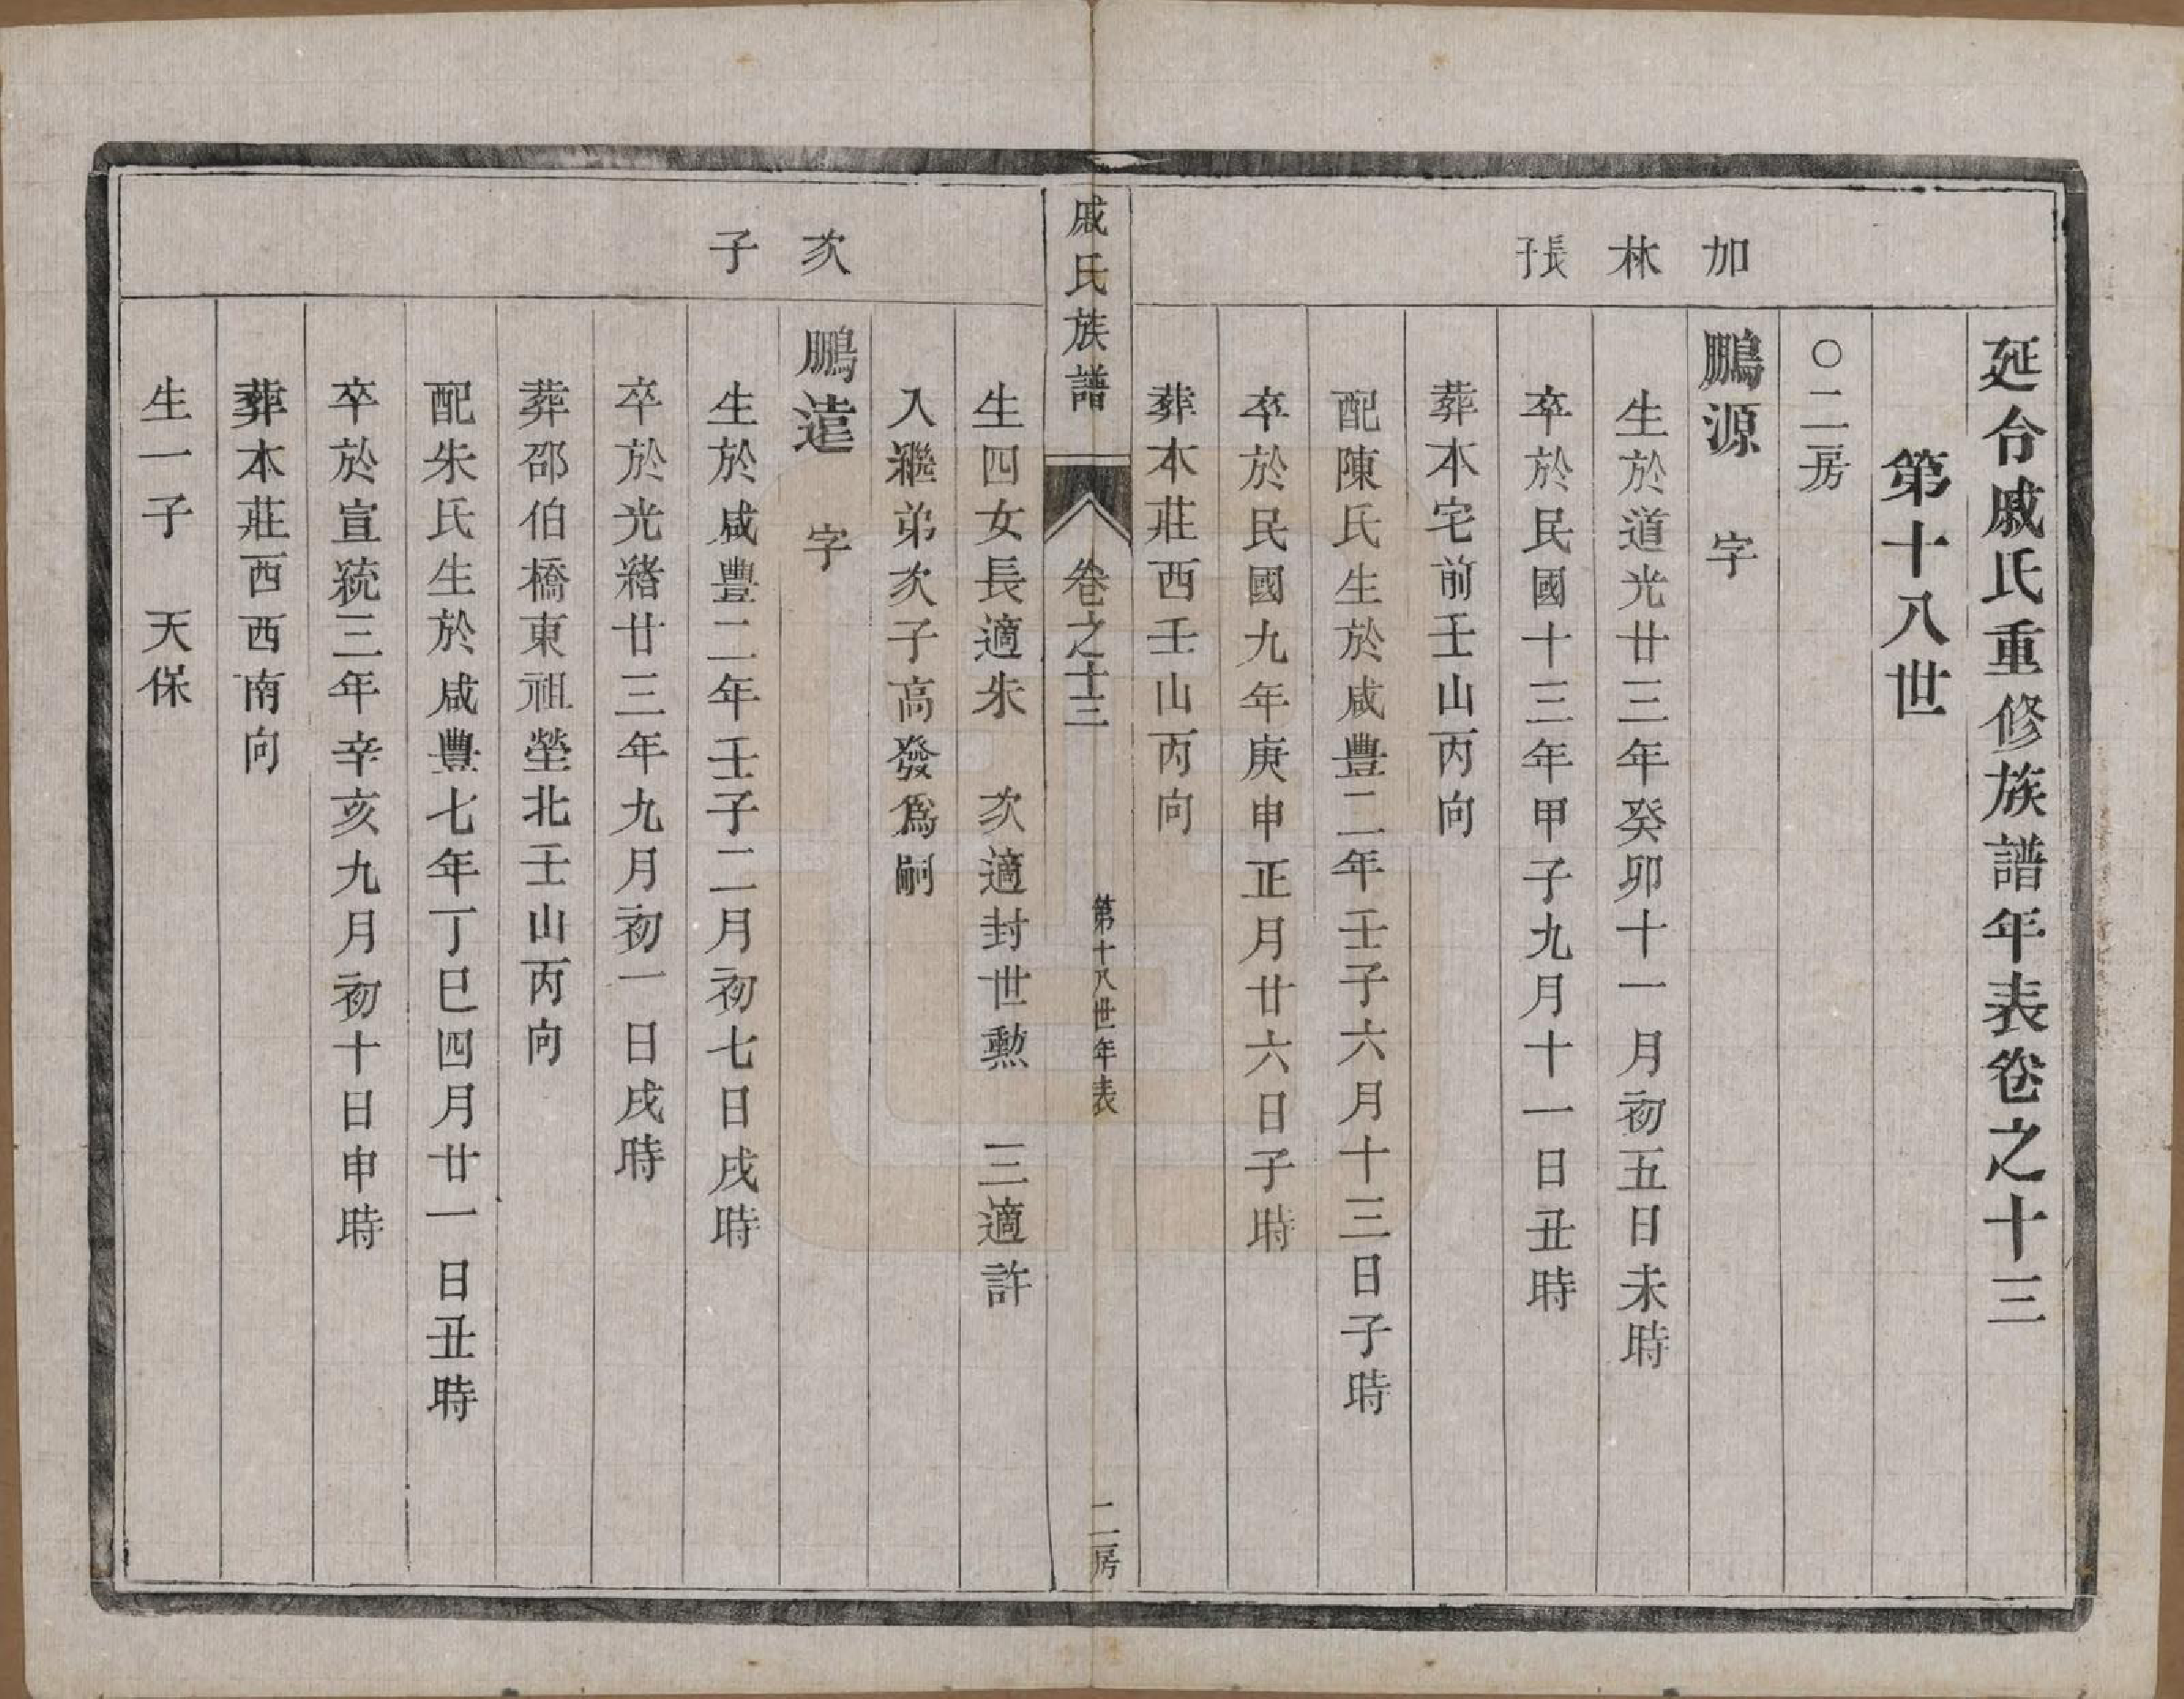 延合戚氏重修族譜年表卷之十三
第十八世
〇二房
加林長子
鵬源　字
生於道光廿三年癸卯十一月初五日未時
卒於民國十三年甲子九月十一日丑時
葬本宅前壬山丙向
配陳氏生於咸豐二年壬子六月十三日子時
卒於民國九年庚申正月廿六日子時
葬本莊西壬山丙向
戚氏族譜　卷之十三　第十八世年表　二房
生四女長適朱　次適封世勲　三適許
入繼弟次子高發爲嗣
次子
鵬遠　字
生於咸豐二年壬子二月初七日戌時
卒於光緒廿三年九月初一日戌時
葬邵伯橋東祖塋北壬山丙向
配朱氏生於咸豐七年丁巳四月廿一日丑時
卒於宣統三年辛亥九月初十日申時
葬本莊西西南向
生一子　天保